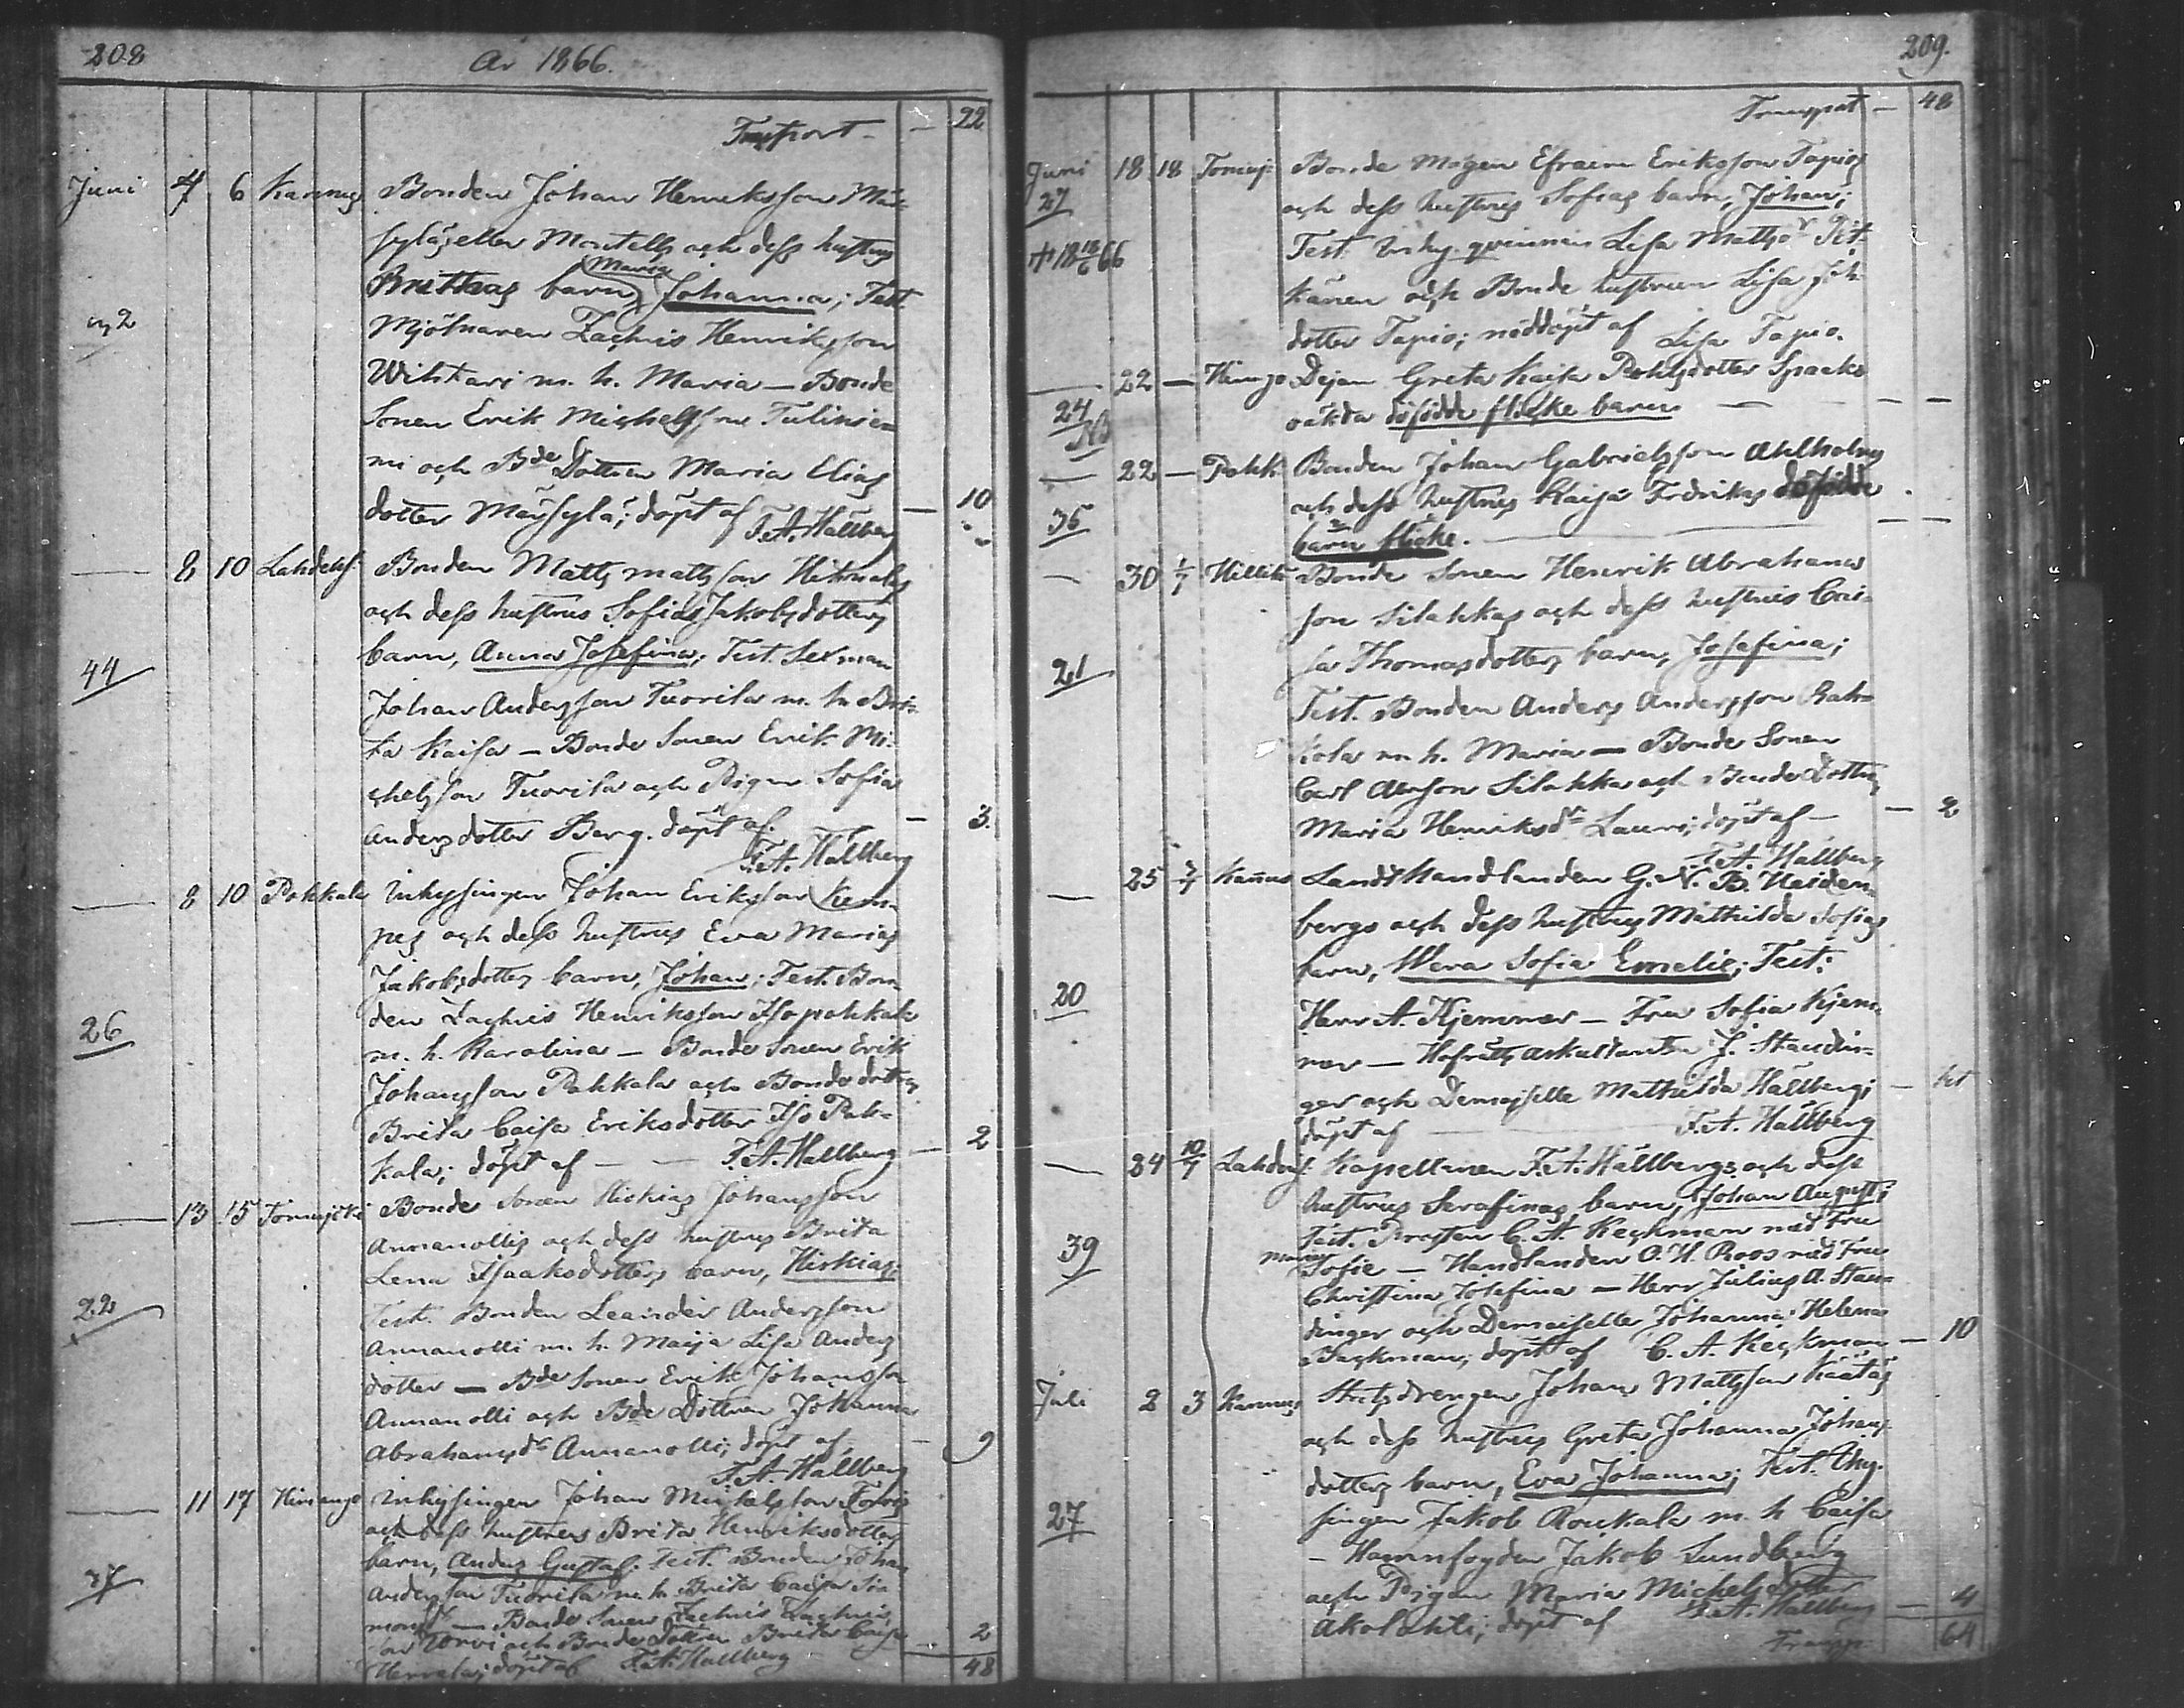 208
År 1866.
22
Juni 4 6 Kannus Bonden Johan Henriksson Mär-
sylä, eller Mantells och dess hustrus
Maria
Brittas barn, Johanna; Test.
Mjölnaren Zachris Henriksson
m. h. Maria — Bonde
Sonen Erik Michelsson
och Bde Dottren Maria Elias
dotter Märsylä; döpt af F. A. Hällberg — 10
— 8 10 Bonden Matts Mattsson
och dess hustrus Sofias Jakobsdotters
44 barn, Anna Josefina; Test. Sexman
Johan Andersson Tuorila m. h. Bri-
ta Kaisa — Bonde Sonen Erik Mi-
chelsson Tuorila och Pigan Sofia
Andersdotter Berg. döpt af — 3.
F. A. Hällberg
— 8 10 Pokkala Inhysingen Johan Eriksson Kem-
pes och dess hustrus Eva Marias
Jakobsdotters barn, Johan; Test. Bon-
den Zachris Henriksson Isopokkala
26
m. h. Karolina — Bonde Sonen Erik
Johansson Pokkala och Bondedottren
Brita Caisa Eriksdotter Iso Pok-
kala; döpt af — F. A. Hällberg — 2
— 13 15 Bonde Sonen Hiskias Johansson
Annanollis och dess hustrus Brita
Lena Isaaksdotters barn, Hiskias;
22 Test. Bonden Leander Andersson
Annanolli m. h. Maija Lisa Anders
dotter — Bde Sonen Erik Johansson
Annanolli och Bde Dottren Johanna
Abrahamsdr Annanolli; döpt af — 9
F. A. Hällberg
— 11 17 Himango Inhysingen Johan Michelsson
och dess hustrus Brita Henriksdotters
barn, Anders Gustaf. Test. Bonden Johan
37 Andersson Tuorila m. h. Brita Caisa Si-
monsdr — Bonde Sonen Zachris Zachris-
son Torvi och Bonde Dottren Brita Caisa — 2
Herrala; döpt af F. A. Hällberg
48
209.
48
Juni 18 18 Bonde Mågen Efraim Eriksson Tapios
27 och dess hustrus Sofias barn, Johan;
+ 18 18/6 66 Test. Inhys. qvinnan Lisa Mattsdr Pit-
känen och Bonde hustrun Lisa Joh.
dotter Tapio; nöddöpt af Lisa Tapio.
— 22 — Himgo Dejan Greta Kajsa
24
NB oäkta dödfödda flicke barn — — —
— 22 — Pokk. Bonden Johan Gabrielsson Ahlholms
och dess hustrus Kaisa Fredrikas dödfödde
36 barn flicke. — — —
— 30 1/7 Bonde Sonen Henrik Abrahams
son Silakkas och dess hustrus Cai-
21 sa Thomasdotters barn, Josefina;
Test. Bonden Anders Andersson Rah-
kola m. h. Maria — Bonde Sonen
Carl Abrson Silakka och Bonde Dottren
Maria Henriksdr Lauri; döpt af — 2
F. A. Hällberg
— 25 Kannus Landthandlanden G. N. B. Heiden-
bergs och dess hustrus Mathilda Sofias
barn, Wera Sofia Emelie; Test:
20 Herr A. Kjemmer — Fru Sofia Kjem-
mer — Hofrätts Auskultanten J. Staudin-
ger och Demoiselle Mathilda Hällberg;
döpt af F. A. Hällberg
— 24 10/7 Kapellanen F. A. Hällbergs och dess
hustrus Serafinas barn, Johan August;
Test. Prosten C. A. Keckman med Fru
39 Maria Sofie — Handlanden O. H. Roos med Fru
Christina Josefina — Herr Julius A. Stau-
dinger och Demoiselle Johanna Helena
Backman; döpt af C. A. Keckman — 10
Juli 2 3 Kannus Johan Mattsson Käätäs
och dess hustrus Greta Johanna Johans
dotters barn, Eva Johanna; Test. Inhy-
27 singen Jakob Roukala m. h. Caisa
— Hamnfogden Jakob Sundberg
och Pigan Maria Michelsdotter
döpt af F. A. Hällberg — 4
64